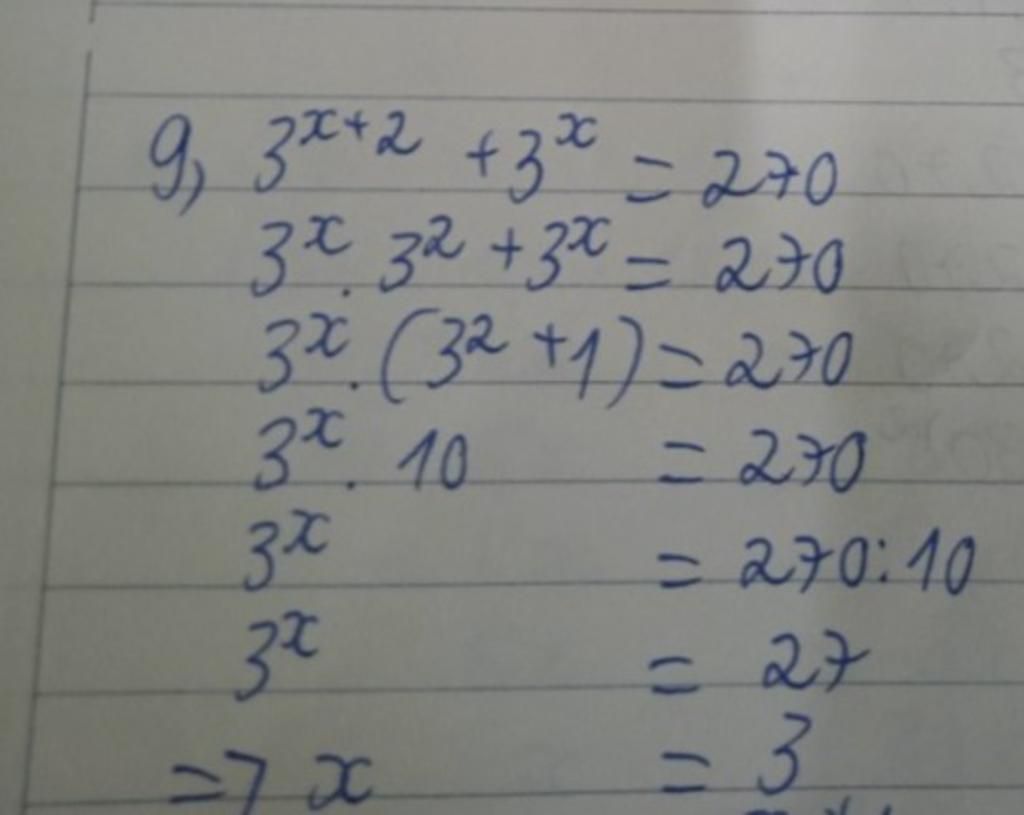 9, 3^{x+2} + 3^x = 270
3^x . 3^2 + 3^x = 270
3^x . (3^2 + 1) = 270
3^x . 10 = 270
3^x = 270 : 10
3^x = 27
=> x = 3